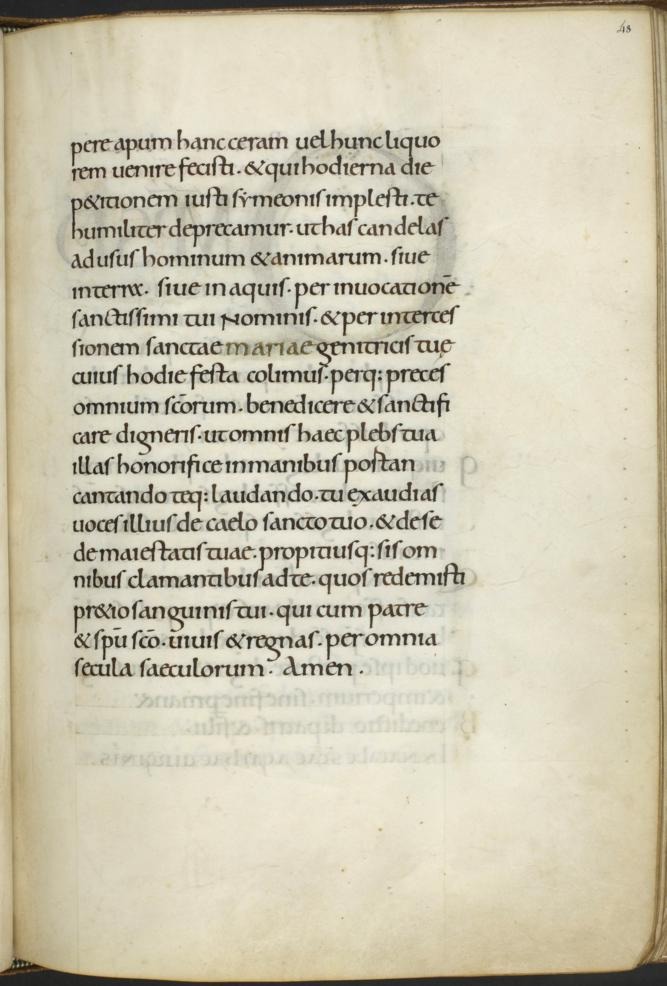 48
pere apum hanc ceram uel hunc liquo
rem uenire fecisti · & qui hodierna die
p&itionem iusti symeonis implesti · te
humiliter deprecamur · ut has candelas
ad usus hominum & animarum · siue
in terra · siue in aquis · per inuocationē
sanctissimi tui Nominis · & per interces
sionem sanctae mariae genitricis tuę
cuius hodie festa colimus · perq: preces
omnium sc̄orum · benedicere & sanctifi
care digneris · ut omnis haec plebs tua
illas honorifice in manibus postan
cantando teq: laudando · tu exaudias
uoces illius de caelo sancto tuo · & de se
de maiestatis tuae · propitiusq: sis om
nibus clamantibus ad te · quos redemisti
pr&io sanguinis tui · qui cum patre
& spū sc̄o · uiuis & regnas · per omnia
secula saeculorum · Amen ·